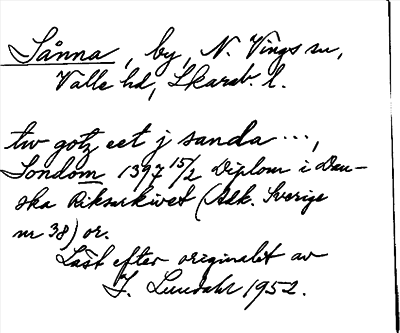 Sånna, by, N. Vings sn,
Valle hd, Skarab. l.
tw gotz eet j sanda ...,
Sondom 1397 15/2 Diplom i Dan-
ska Riksarkivet (Adk. Sverige
nr 38) or.
Läst efter originalet av
I. Lundahl 1952.